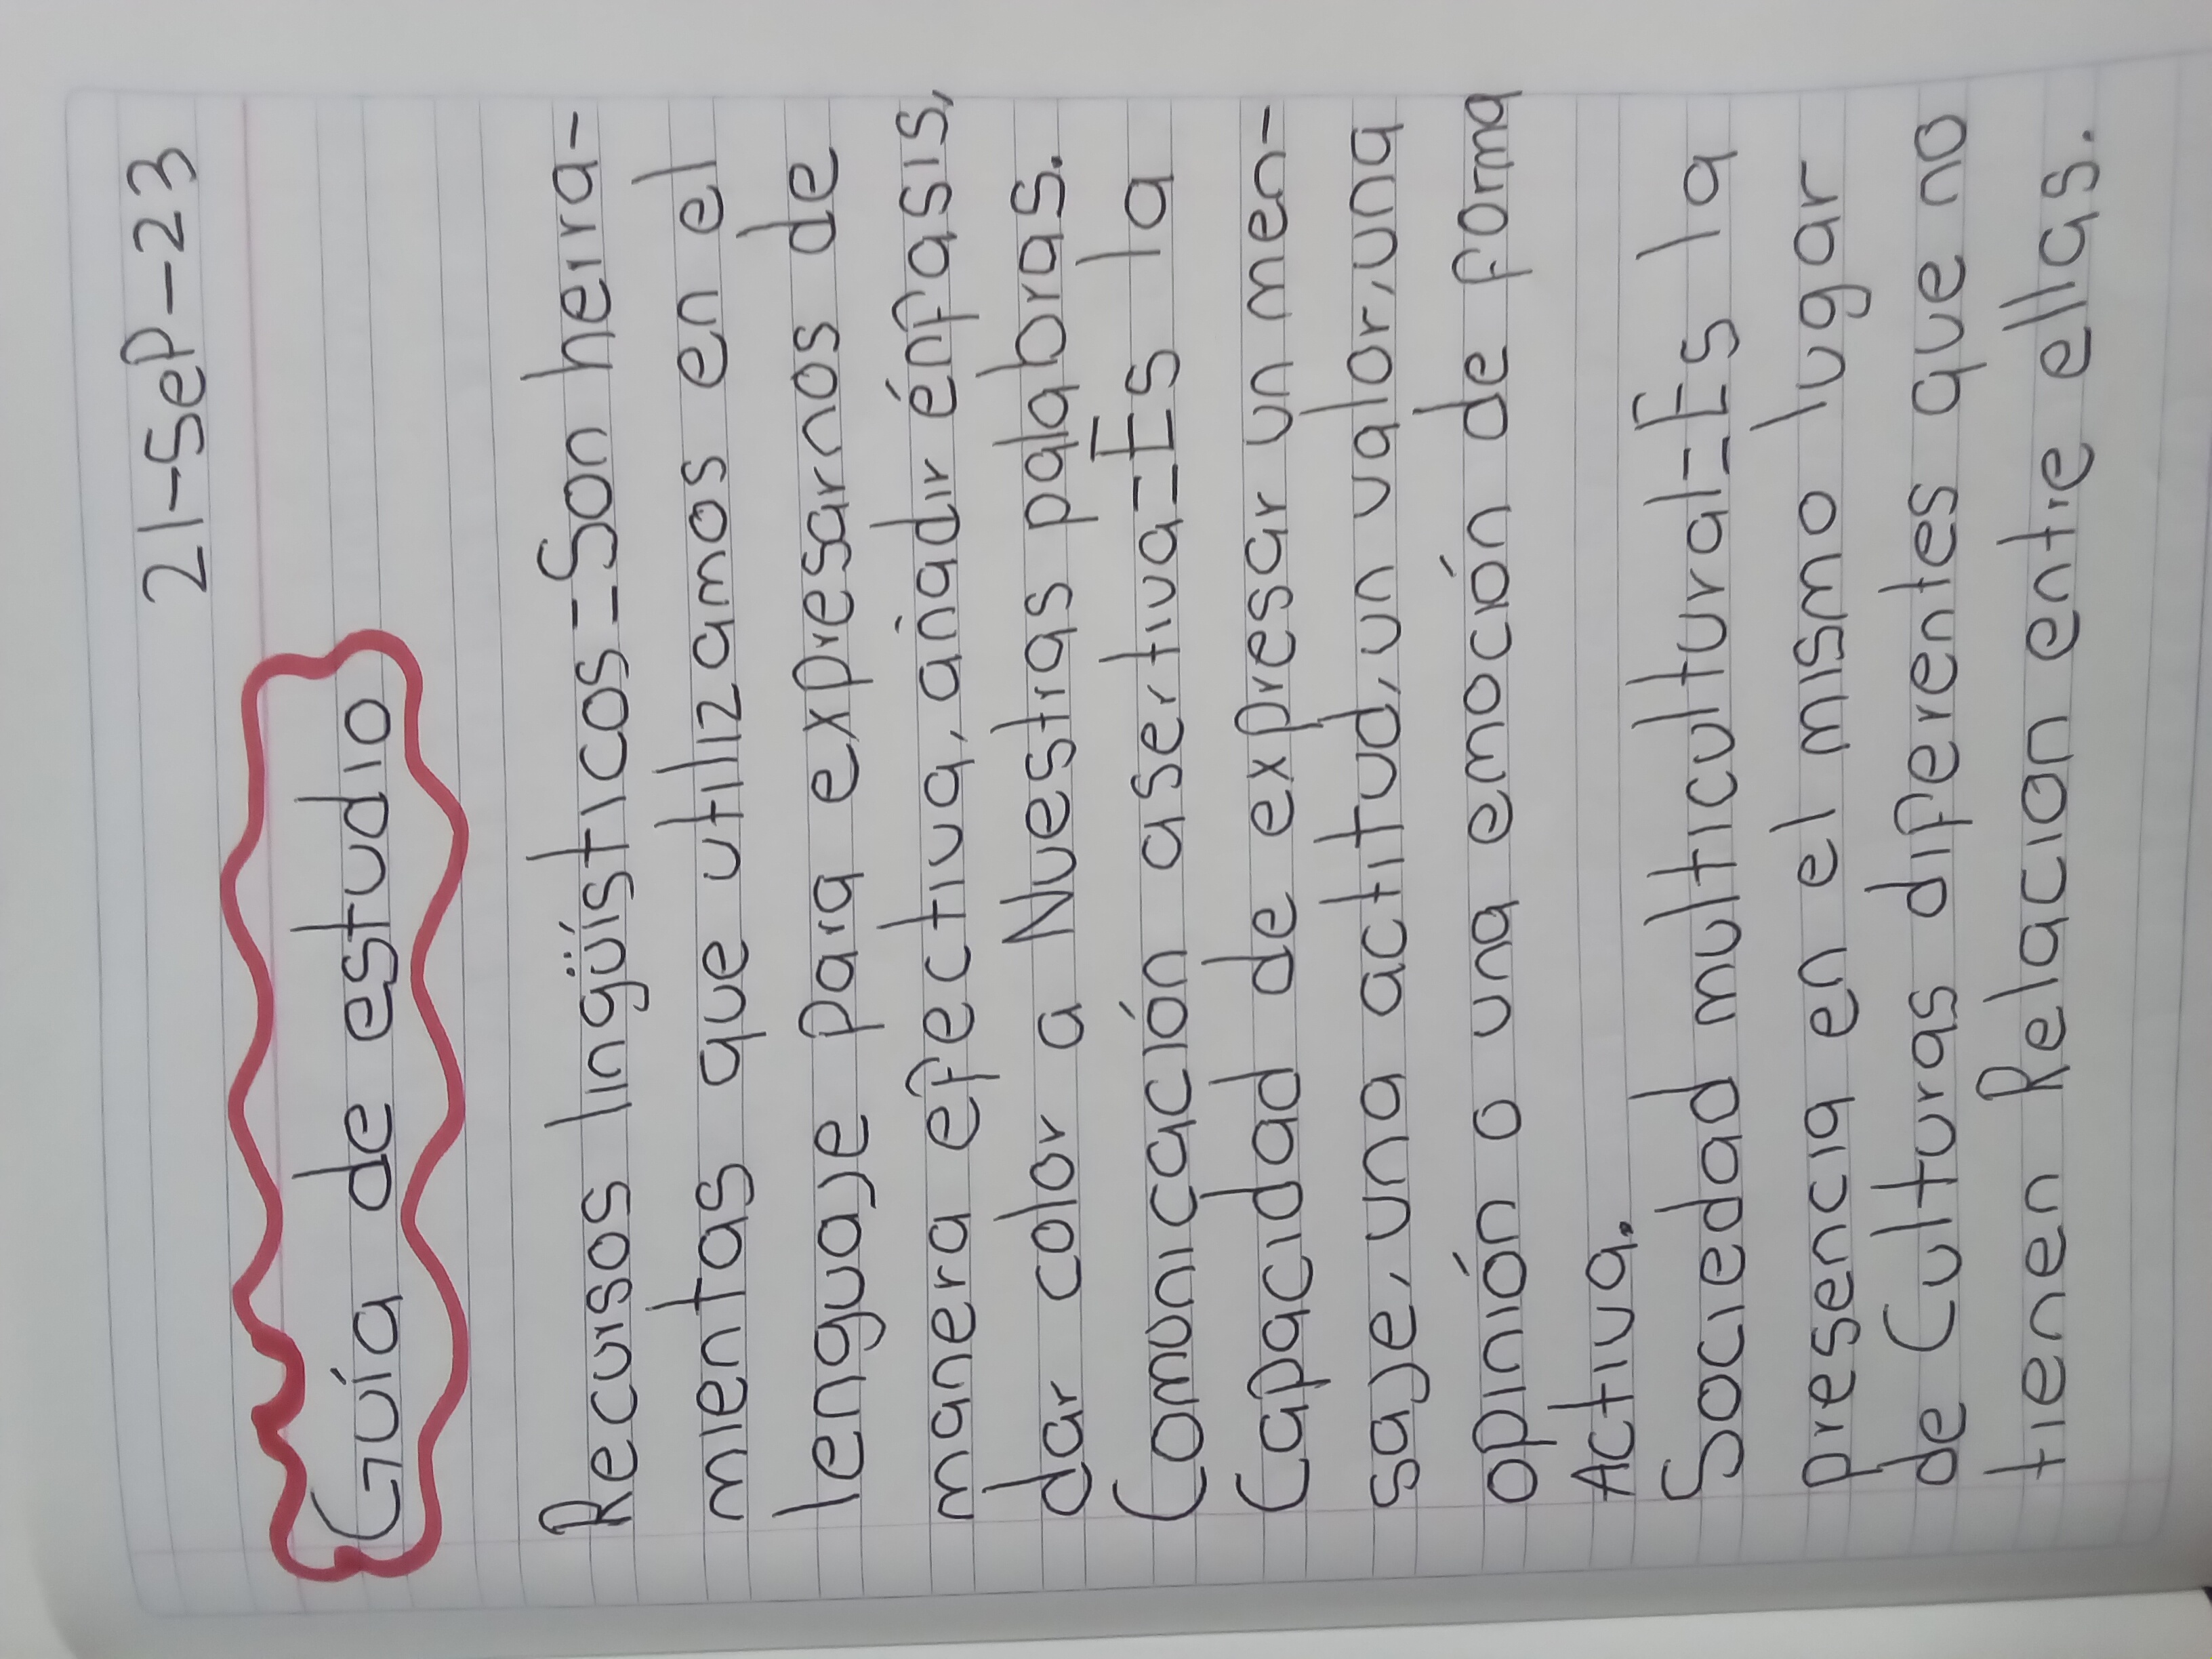 21-Sep-23
Guía de estudio
Recursos lingüísticos=Son herra-
mientas que utilizamos en el
lenguaje para expresarnos de
manera efectiva, añadir énfasis,
dar color a Nuestras palabras.
Comunicación asertiva=Es la
Capacidad de expresar un men-
saje, una actitud, un valor, una
opinión o una emoción de forma
Activa.
Sociedad multicultural=Es la
presencia en el mismo lugar
de Culturas diferentes que no
tienen Relación entre ellas.